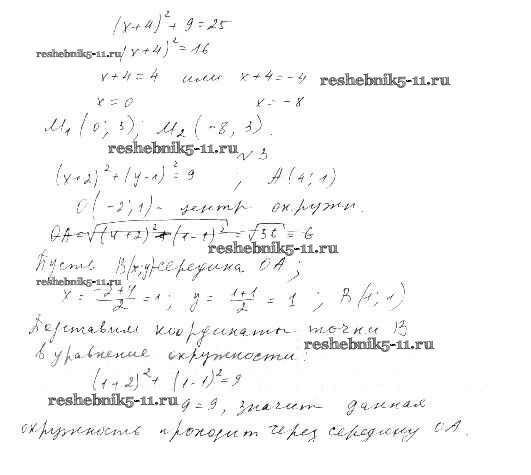 (x+4)² + 9 = 25
reshebnik5-11.ru (x+4)² = 16
x+4 = 4 или x+4 = -4 reshebnik5-11.ru
x = 0 x = -8
M₁(0; 3); M₂(-8, 3).
reshebnik5-11.ru
№3
(x+2)² + (y-1)² = 9, A(4; 1)
O(-2; 1) - центр окружн.
OA = √((4+2)² + (1-1)²) = √36 = 6
reshebnik5-11.ru
Пусть B(x; y) середина OA;
reshebnik5-11.ru
x = (-2+4)/2 = 1; y = (1+1)/2 = 1; B(1; 1)
Подставим координаты точки B
в уравнение окружности: reshebnik5-11.ru
(1+2)² + (1-1)² = 9
reshebnik5-11.ru 9 = 9, значит данная
окружность проходит через середину OA.